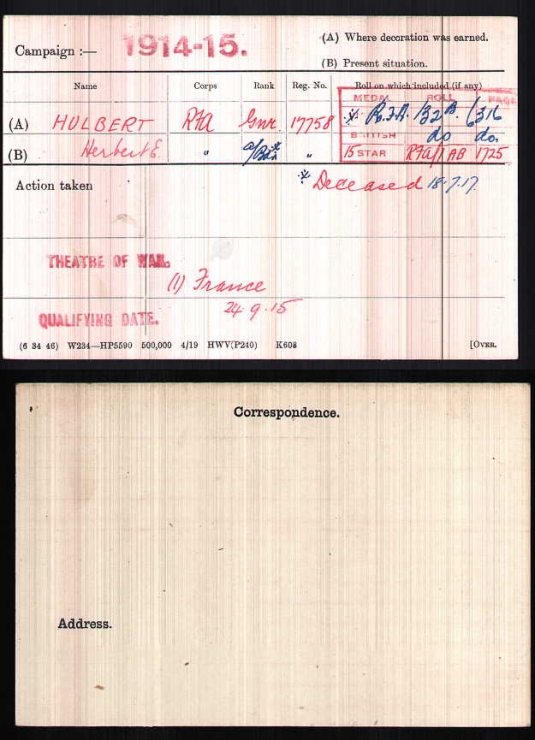 Campaign :— 1914-15. (A) Where decoration was earned.
(B) Present situation.
Name Corps Rank Reg. No. Roll on which included (if any)
MEDAL ROLL PAGE
(A) HULBERT RFA Gnr. 17758 * R.F.A. 132B. 6316
BRITISH do do.
(B) Herbert E. " a/Bdr* " 15 STAR RFA/1AB 1725
Action taken * Deceased 18.7.17.
THEATRE OF WAR.
(1) France
24.9.15
QUALIFYING DATE.
(6 34 46) W234—HP5590 500,000 4/19 HWV(P240) K608 [OVER.
Correspondence.
Address.